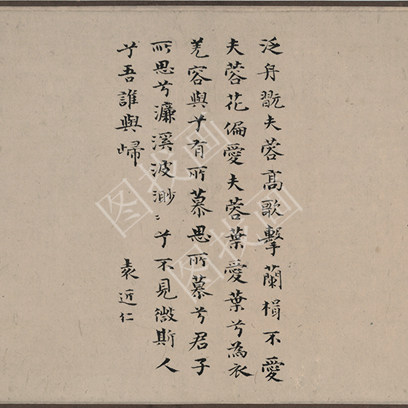 泛舟翫夫蓉髙歌擊蘭楫不愛
夫蓉花偏愛夫蓉葉愛葉兮為衣
羌容與兮有所慕思所慕兮君子
所思兮濂溪波渺〻兮不見微斯人
兮吾誰與歸
袁近仁